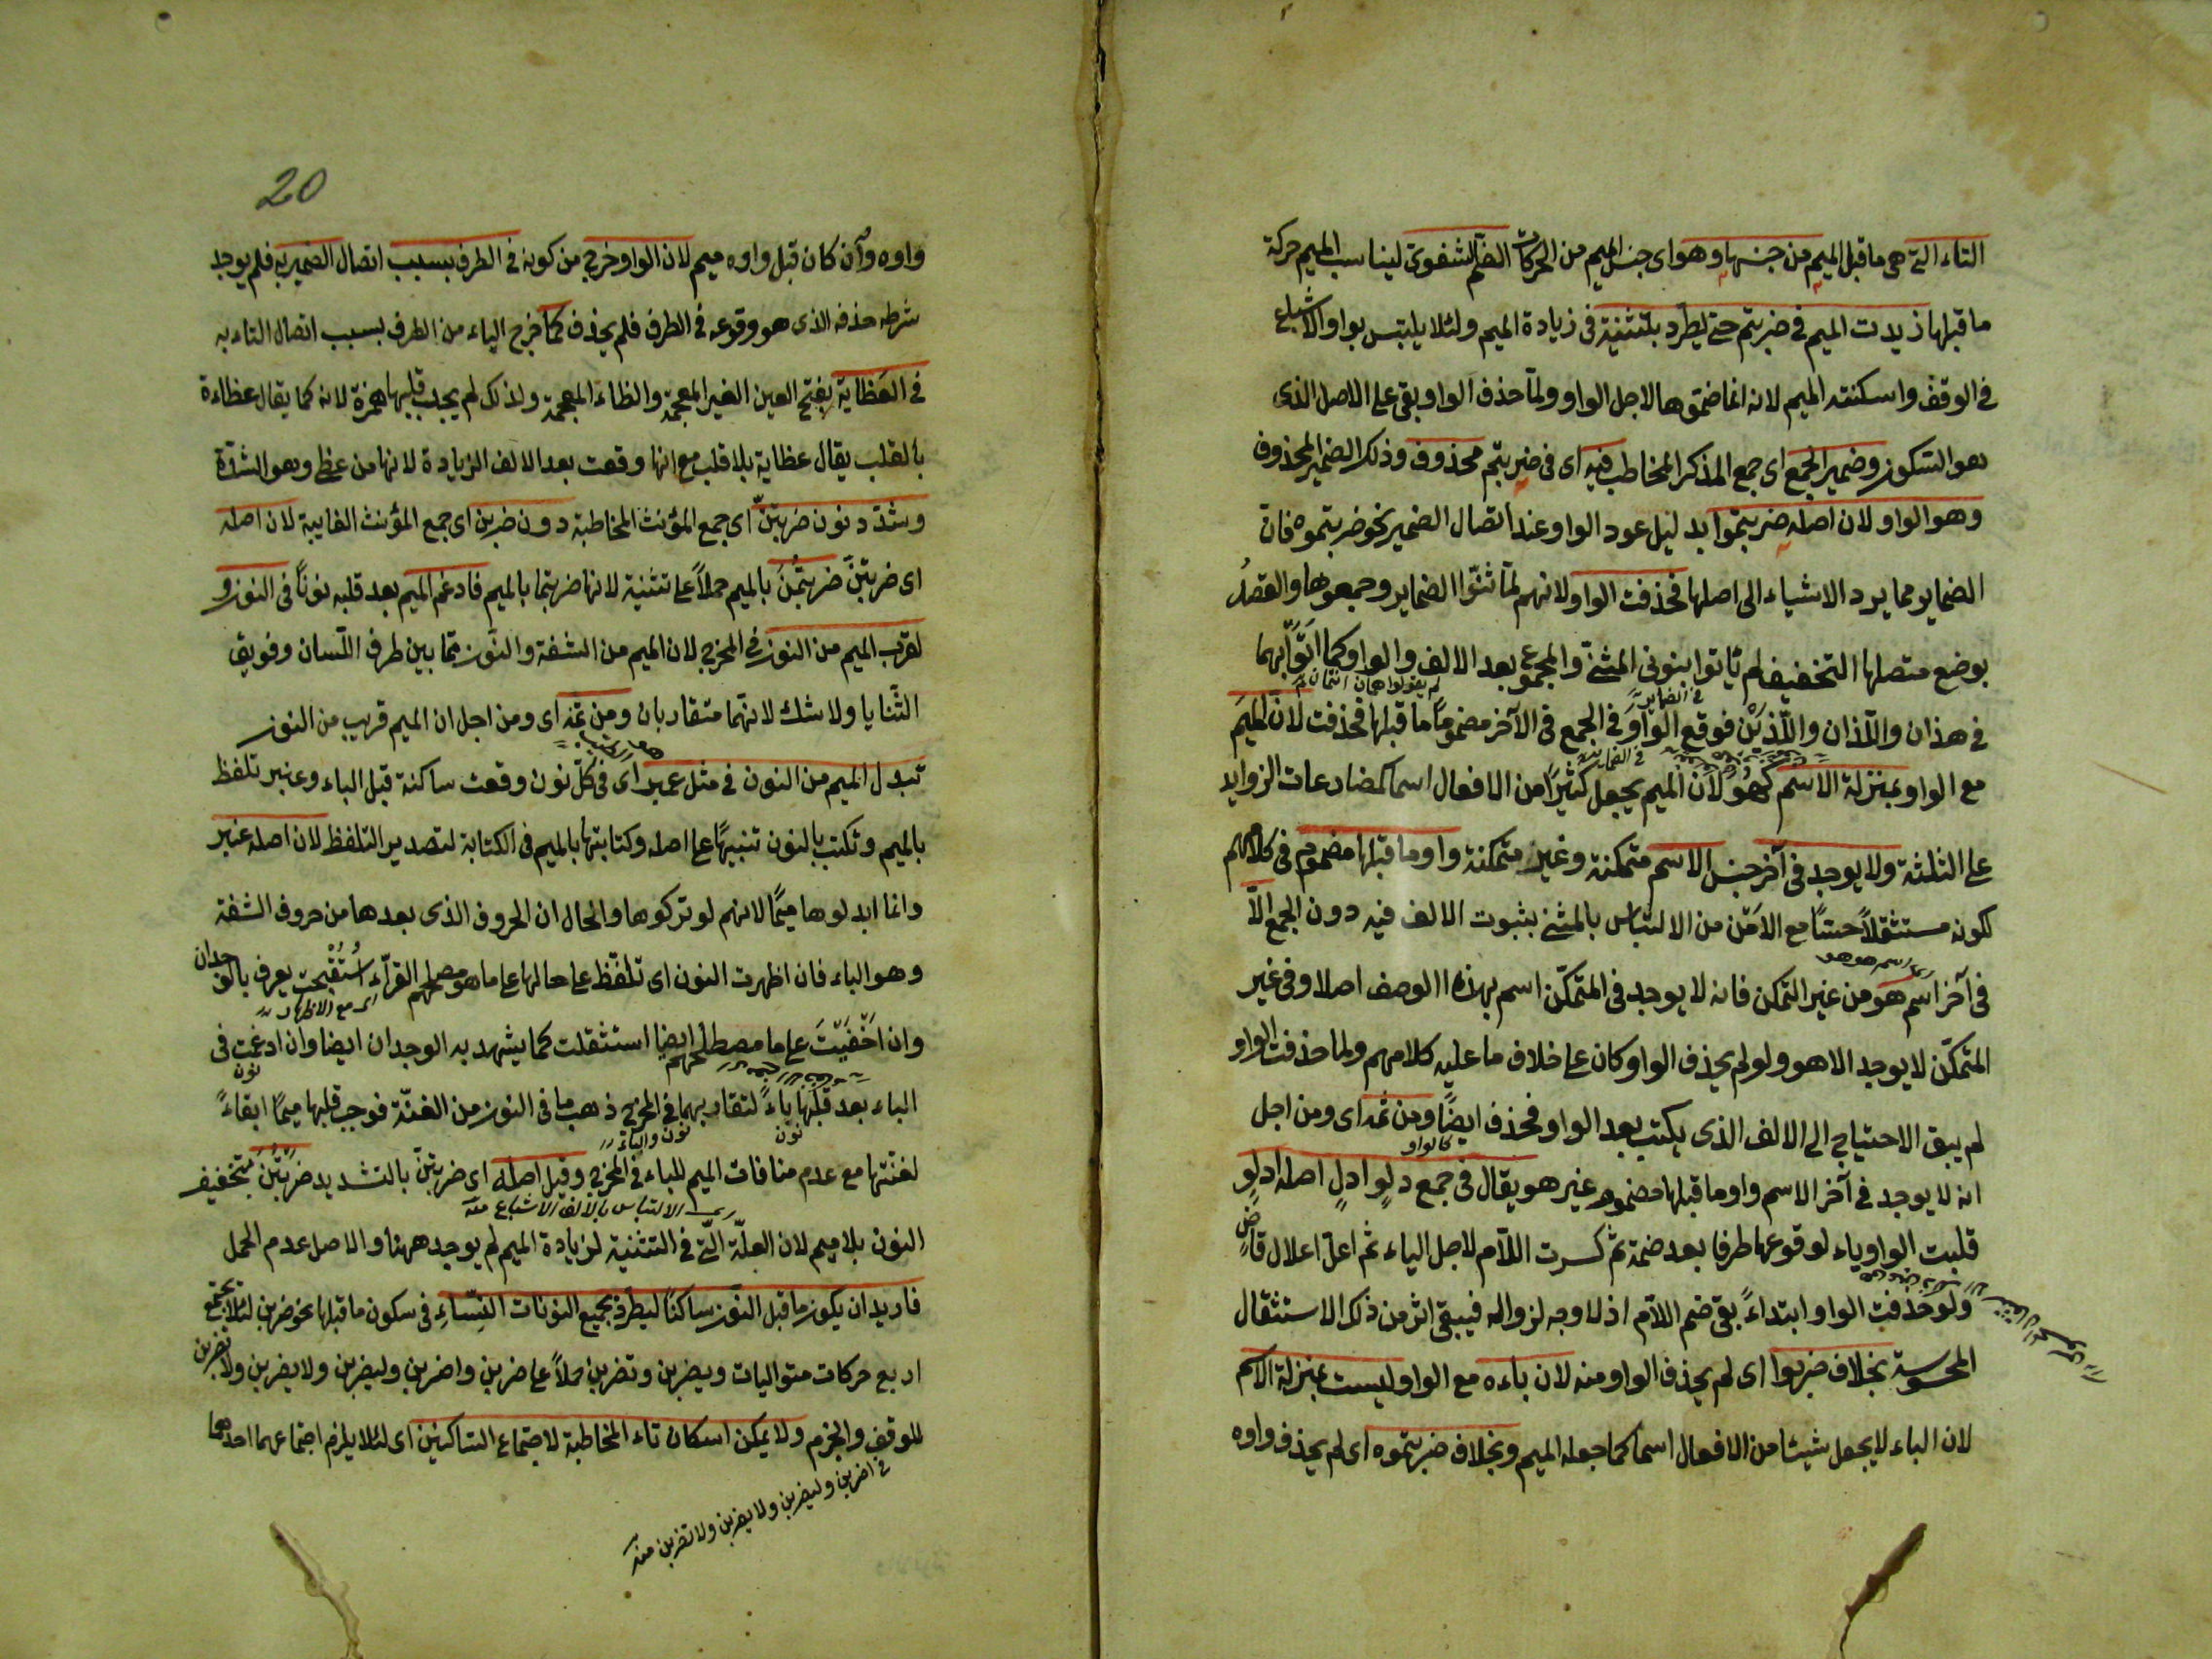 التاء التى هى ما قبل الميم من جنسها وهو اى جنس الميم من الحركات الضم الشفوى ليناسب الميم حركة
ما قبلها زيدت الميم فى ضربتم حتى يطرد بتثنية فى زيادة الميم ولئلا يلتبس بواو الاشباع
فى الوقف واسكنت الميم لانه انما ضموها لاجل الواو ولما حذف الواو بقى على الاصل الذى
هو السكون وضمير الجمع اى جمع المذكر المخاطب فيه اى فى ضربتم محذوف وذلك الضمير المحذوف
وهو الواو لان اصله ضربتموا بدليل عود الواو عند اتصال الضمير نحو ضربتموه فان
الضماير مما يرد الاشياء الى اصلها فحذفت الواو لانهم لما ثنوا الضماير وجمعوها والقصد
بوضع متصلها التخفيف لم ياتوا بنونى المثنى والمجموع بعد الالف والواو كما اتوا بهما
فى هذان واللذان واللذين فوقع الواو فى الجمع فى الآخر مضموما ما قبلها فحذفت لان الميم
مع الواو بمنزلة الاسم كهو لان الميم يجعل كثيرا من الافعال اسما كمضارعات الزوايد
على الثلثة ولا يوجد فى آخر جنس الاسم متمكنة وغير متمكنة واو ما قبلها مضموم فى كلامهم
لكونه مستثقلا حسا مع الامن من الالتباس بالمثنى بثبوت الالف فيه دون الجمع الا
فى آخر اسم هو من غير التمكن فانه لا يوجد فى المتمكن اسم بهذا الوصف اصلا وفى غير
المتمكن لا يوجد الا هو ولو لم يحذف الواو كان على خلاف ما عليه كلامهم ولما حذفت الواو
لم يبق الاحتياج الى الالف الذى يكتب بعد الواو فحذف ايضا ومن ثمه اى ومن اجل
انه لا يوجد فى آخر الاسم واو ما قبلها مضموم غير هو يقال فى جمع دلو ادل اصله ادلو
قلبت الواو ياء لوقوعها طرفا بعد ضمة ثم كسرت اللام لاجل الياء ثم اعل اعلال قاض
ولو حذفت الواو ابتداء بقى ضم اللام اذ لا وجه لزواله فيبقى اثر من ذلك الاستثقال
المحسوسة بخلاف ضربوا اى لم يحذف الواو منه لان باءه مع الواو ليست بمنزلة الاسم
لان الباء لا يجعل شيئا من الافعال اسما كما جعله الميم وبخلاف ضربتموه اى لم يحذف واوه
20
واوه وان كان قبل واوه ميم لان الواو خرج من كونه فى الطرف بسبب اتصال الضمير به فلم يوجد
شرط حذفه الذى هو وقوعه فى الطرف فلم يحذف كما خرج الياء من الطرف بسبب اتصال التاء به
فى العظاية بفتح العين الغير المعجمة والظاء المعجمة ولذلك لم يجب قلبها همزة لانه كما يقال عظاءة
بالقلب يقال عظاية بلا قلب مع انها وقعت بعد الالف الزيادة لانها من عظى وهو الشدة
وشدد نون ضربتن اى جمع المؤنث المخاطبة دون ضربن اى جمع المؤنث الغايبة لان اصله
اى ضربتن ضربتمن بالميم حملا على تثنية لانها ضربتما بالميم فادغم الميم بعد قلبه نونا فى النون و
لقرب الميم من النون فى المخرج لان الميم من الشفة والنون مما بين طرف اللسان وفويق
الثنايا ولا شك لانهما متقاربان ومن ثمه اى ومن اجل ان الميم قريب من النون
تبدل الميم من النون فى مثل عمبر اى فى كل نون وقعت ساكنة قبل الباء وعنبر تلفظ
بالميم وتكتب بالنون تنبيها على اصله وكتابتها بالميم فى الكتابة لتصدير التلفظ لان اصله عنبر
وانما ابدلوها ميما لانهم لو تركوها والحال ان الحروف الذى بعدها من حروف الشفة
وهو الباء فان اظهرت النون اى تلفظ على حالها على ما هو مصطلحهم القراء استقبحت يعرف بالوجدان
اى مع الاظهار
وان اخفيت على ما مصطلحهم ايضا استثقلت كما يشهد به الوجدان ايضا وان ادغمت فى
نون
الباء بعد قلبها باء لتقاربهما فى المخرج ذهب ما فى النون من الغنة فوجب قلبها ميما ابقاء
نون والباء
نون
لغنتها مع عدم منافات الميم للباء فى المخرج وقيل اصله اى ضربتن بالتشديد ضربتن بتخفيف
الالتباس بالالف الاشباع منه
النون بلا ميم لان العلة التى فى التثنية لزيادة الميم لم يوجد ههنا والاصل عدم الحمل
فاريد ان يكون ما قبل النون ساكنا ليطرد بجميع النونات النساء فى سكون ما قبلها نحو ضربن لئلا يجتمع
اربع حركات متواليات ويضربن وتضربن حملا على ضربن واضربن وليضربن ولا يضربن ولا تضربن
للوقف والجزم ولا يمكن اسكان تاء المخاطبة لاجتماع الساكنين اى لئلا يلزم اجتماعهما احدهما
فى اضربن وليضربن ولا يضربن ولا تضربن منه